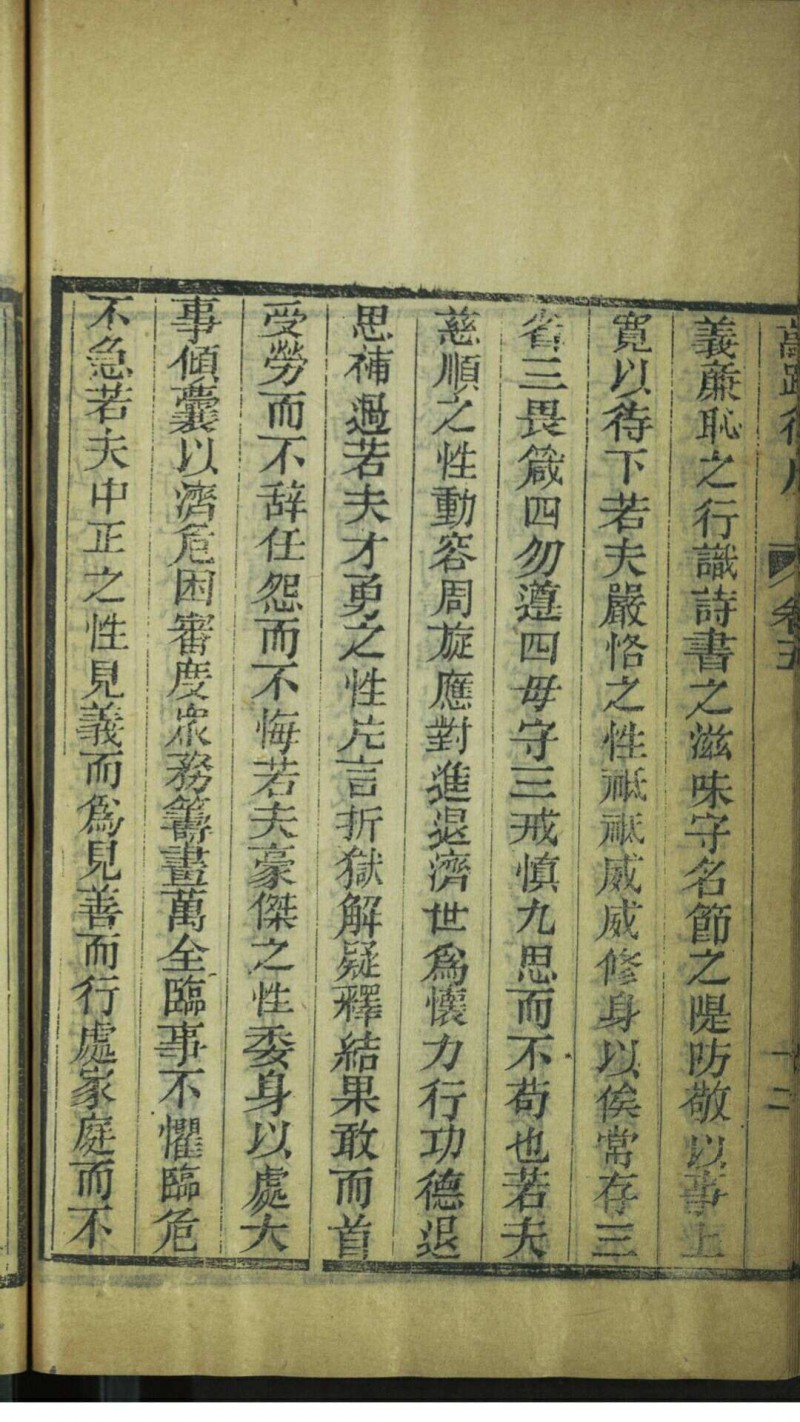 卷五
十二
義廉恥之行識詩書之滋味守名節之隄防敬以事上
寬以待下若夫嚴恪之性祗祗威威修身以俟常存三
省三畏箴四勿遵四毋守三戒慎九思而不苟也若夫
慈順之性動容周旋應對進退濟世爲懷力行功德退
思補過若夫才勇之性片言折獄解疑釋結果敢而首
受勞而不辞任怨而不悔若夫豪傑之性委身以處大
事傾囊以濟危困審度眾務籌畫萬全臨事不懼臨危
不急若夫中正之性見義而爲見善而行處家庭而不